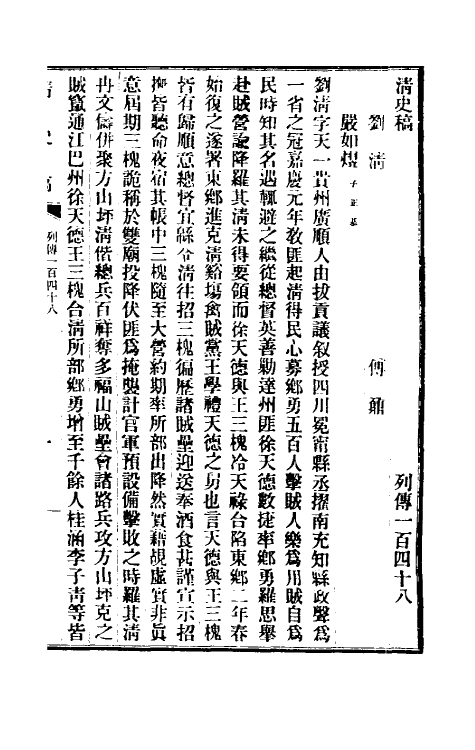 清史稿 列傳一百四十八
劉清 傅鼐
嚴如熤 子正基
劉清字天一貴州廣順人由拔貢議敘授四川冕甯縣丞擢南充知縣政聲爲
一省之冠嘉慶元年敎匪起清得民心募鄉勇五百人擊賊人樂爲用賊自爲
民時知其名遇輒避之繼從總督英善勦達州匪徐天德數捷率鄉勇羅思舉
赴賊營諭降羅其清未得要領而徐天德與王三槐冷天祿合陷東鄉二年春
始復之遂署東鄉進克清谿塲禽賊黨王學禮天德之舅也言天德與王三槐
皆有歸順意總督宜緜令清往招三槐徧歷諸賊壘迎送奉酒食甚謹宣示招
撫皆聽命夜宿其帳中三槐隨至大營約期率所部出降然實藉覘虛實非眞
意屆期三槐詭稱於雙廟投降伏匪爲掩襲計官軍預設備擊敗之時羅其清
冉文儔併聚方山坪清偕總兵百祥奪多福山賊壘會諸路兵攻方山坪克之
賊竄通江巴州徐天德王三槐合清所部鄉勇增至千餘人桂涵李子青等皆
清史稿 列傳一百四十八 一